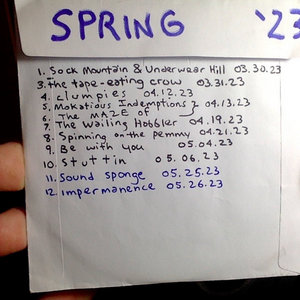 SPRING '23
1. Sock Mountain & Underwear Hill 03.30.23
3. The tape-eating crow 03.31.23
4. clumpies 04.12.23
5. Mokatious Indemptions } 04.13.23
6. The MAZE of
7. The Wailing Hobbler 04.19.23
8. Spinning on the pemmy 04.21.23
9. Be with you 05.04.23
10. Stuttin 05.06.23
11. Sound sponge 05.25.23
12. Impermanence 05.26.23